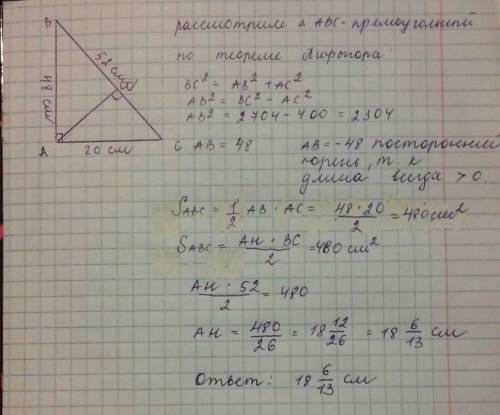 B
52 см
48 см
A
20 см
C
рассмотрим △ ABC - прямоугольный
по теореме Пифагора:
BC² = AB² + AC²
AB² = BC² - AC²
AB² = 2704 - 400 = 2304
AB = 48 AB = -48 посторонний
корень, т. к
длина всегда > 0.
S_ABC = 1/2 AB · AC = 48 · 20/2 = 480 см²
S_ABC = AH · BC/2 = 480 см²
AH · 52/2 = 480
AH = 480/26 = 18 12/26 = 18 6/13 см
Ответ: 18 6/13 см